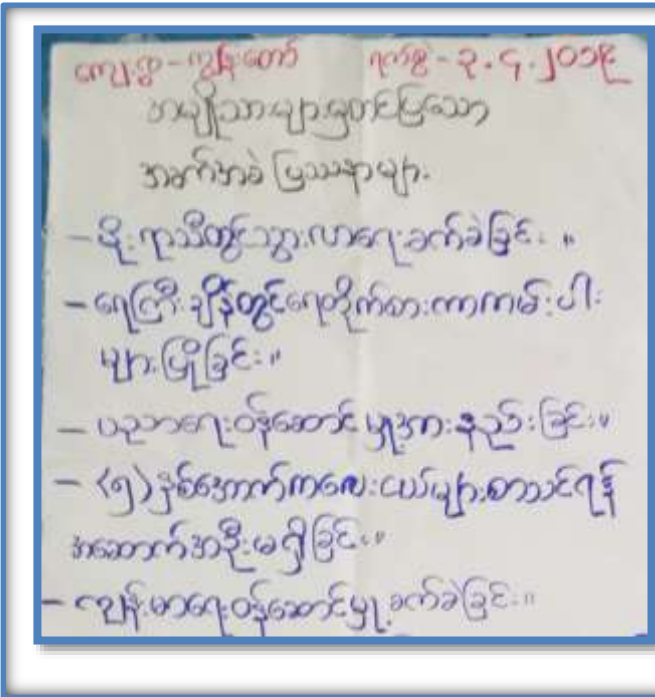 ကျေးရွာ-ကျွန်းတော် ရက်စွဲ-၃.၄.၂၀၁၉
အမျိုးသားများမှတင်ပြသော
အခက်အခဲ ပြဿနာများ
- မိုးရာသီတွင်သွားလာရေးခက်ခဲခြင်း ။
- ရေကြီးချိန်တွင်ရေတိုက်စားကာကမ်းပါး
များပြိုခြင်း။
- ပညာရေးဝန်ဆောင်မှုအားနည်းခြင်း။
- (၅)နှစ်အောက်ကလေးငယ်များစာသင်ရန်
အဆောက်အဦးမရှိခြင်း။
- ကျန်းမာရေးဝန်ဆောင်မှု့ခက်ခဲခြင်း။